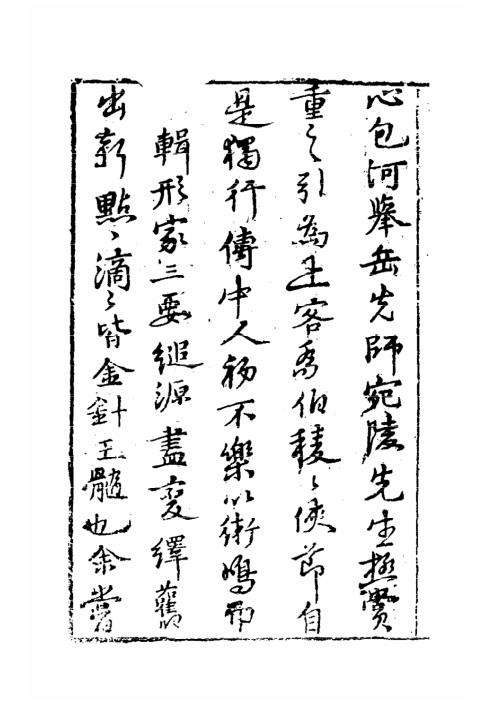 心包河舉岳先師宛陵先生極賞
重之引為上客喬伯稜〻俠節自
是獨行傳中人初不樂以術鳴即
輯形家三要縋源盡變繹舊
出新點〻滴〻皆金針玉髓也余嘗